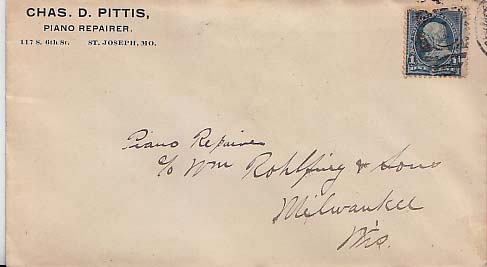 CHAS. D. PITTIS,
PIANO REPAIRER.
117 S. 6th St. ST. JOSEPH, MO.
1 1
Piano Repairer
c/o Wm Rohlfing & Sons
Milwaukee
Wis.